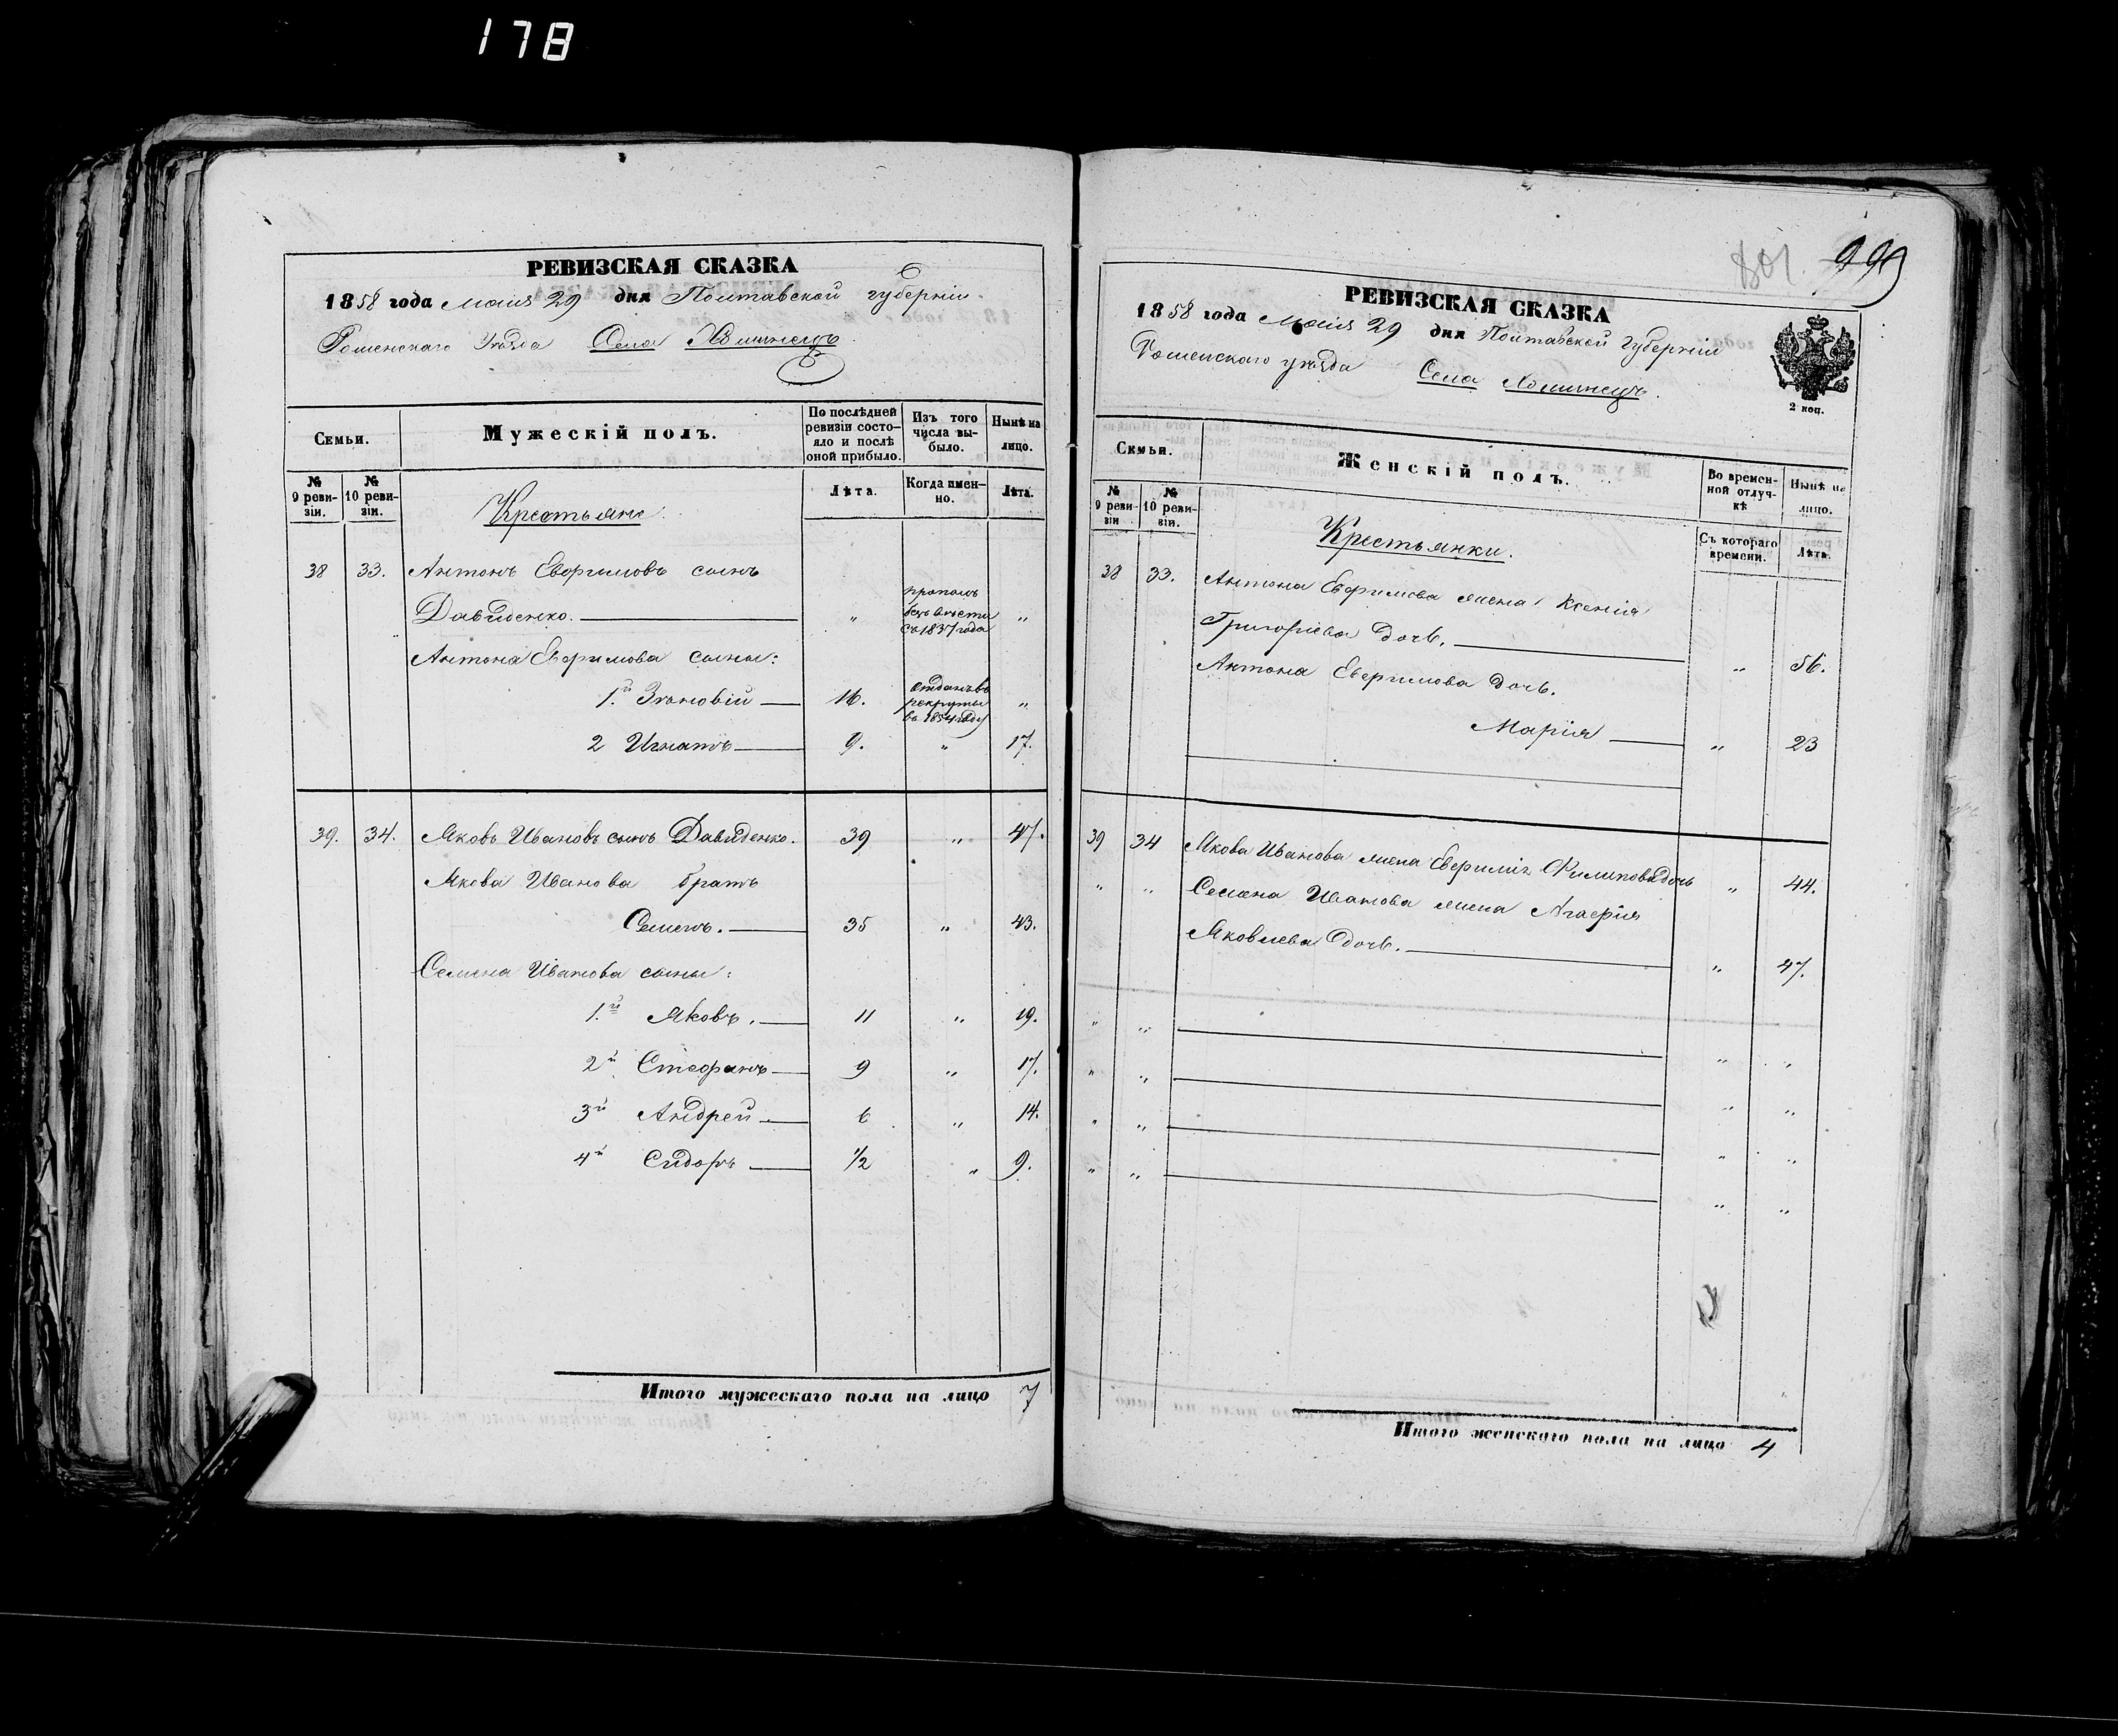 178
РЕВИЗСКАЯ СКАЗКА
1858 года Маия 29 дня Полтавской губерніи.
Роменскаго Уѣзда Села Хоминецъ
Семьи.
Мужескій полъ.
По послѣдней ревизіи состояло и послѣ оной прибыло.
Изъ того числа выбыло.
Нынѣ на лицо.
№ 9 ревизіи.
№ 10 ревизіи.
Крестьяне.
Лѣта.
Когда именно.
Лѣта.
38 33. Антонъ Евфимовъ сынъ
Давиденко. „ пропалъ безъ вѣсти съ 1837 года „
Антона Евфимова сыны:
1.й Зѣновій 16. отданъ въ рекруты въ 1854 году „
2 Игнатъ 9. „ 17.
39. 34. Яковъ Ивановъ сынъ Давиденко. 39 „ 47.
Якова Иванова братъ
Семенъ. 35 „ 43.
Семена Иванова сыны:
1.й Яковъ. 11 „ 19.
2й Стефанъ 9 „ 17.
3й Андрей 6 „ 14.
4й Сидоръ 1/2 „ 9.
Итого мужескаго пола на лицо 7
801. 99
РЕВИЗСКАЯ СКАЗКА
1858 года Маия 29 дня Полтавской Губерніи
Роменскаго уѣзда Села Хоминецъ.
2 коп.
Семьи.
Женскій полъ.
Во временной отлучкѣ
Нынѣ на лицо.
№ 9 ревизіи
№ 10 ревизіи.
Крестьянки.
Съ котораго времени.
Лѣта.
38 33. Антона Евфимова жена Ксенія
Григоріева дочь. „ 56.
Антона Евфимова дочь.
Марія „ 23
39 34 Якова Иванова жена Евфимія Филипова дочь „ 44.
„ „ Семена Иванова жена Агафія
Яковлева дочь. „ 47.
„ „ „ „
„ „ „ „
„ „ „ „
„ „ „ „
Итого женскаго пола на лицо 4